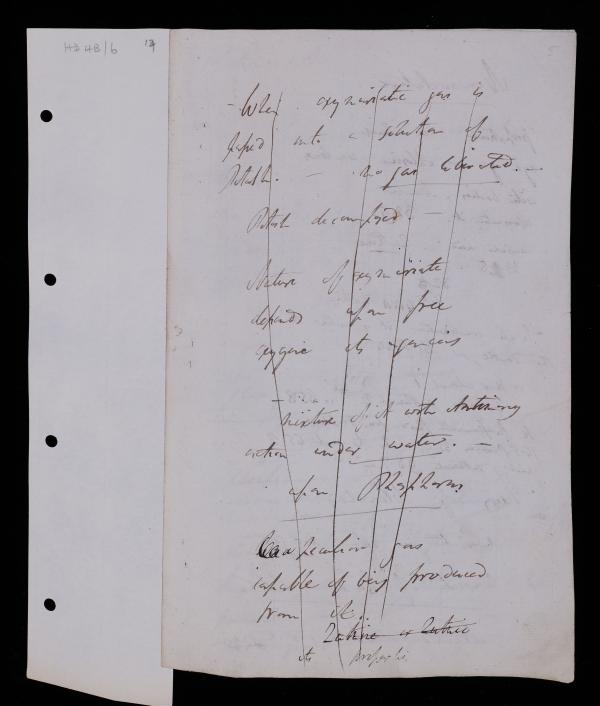 HD 4B/6 17
- When oxymuriatic gas is
passed into a solution of
Potash. - no gas liberated.
Potash decomposed.
Nature of oxymuriate
depends upon free
oxygene its agencies
mixture of it with Antimony
action under water. -
upon Phosphorus
a peculiar gas
capable of being produced
from it.
its